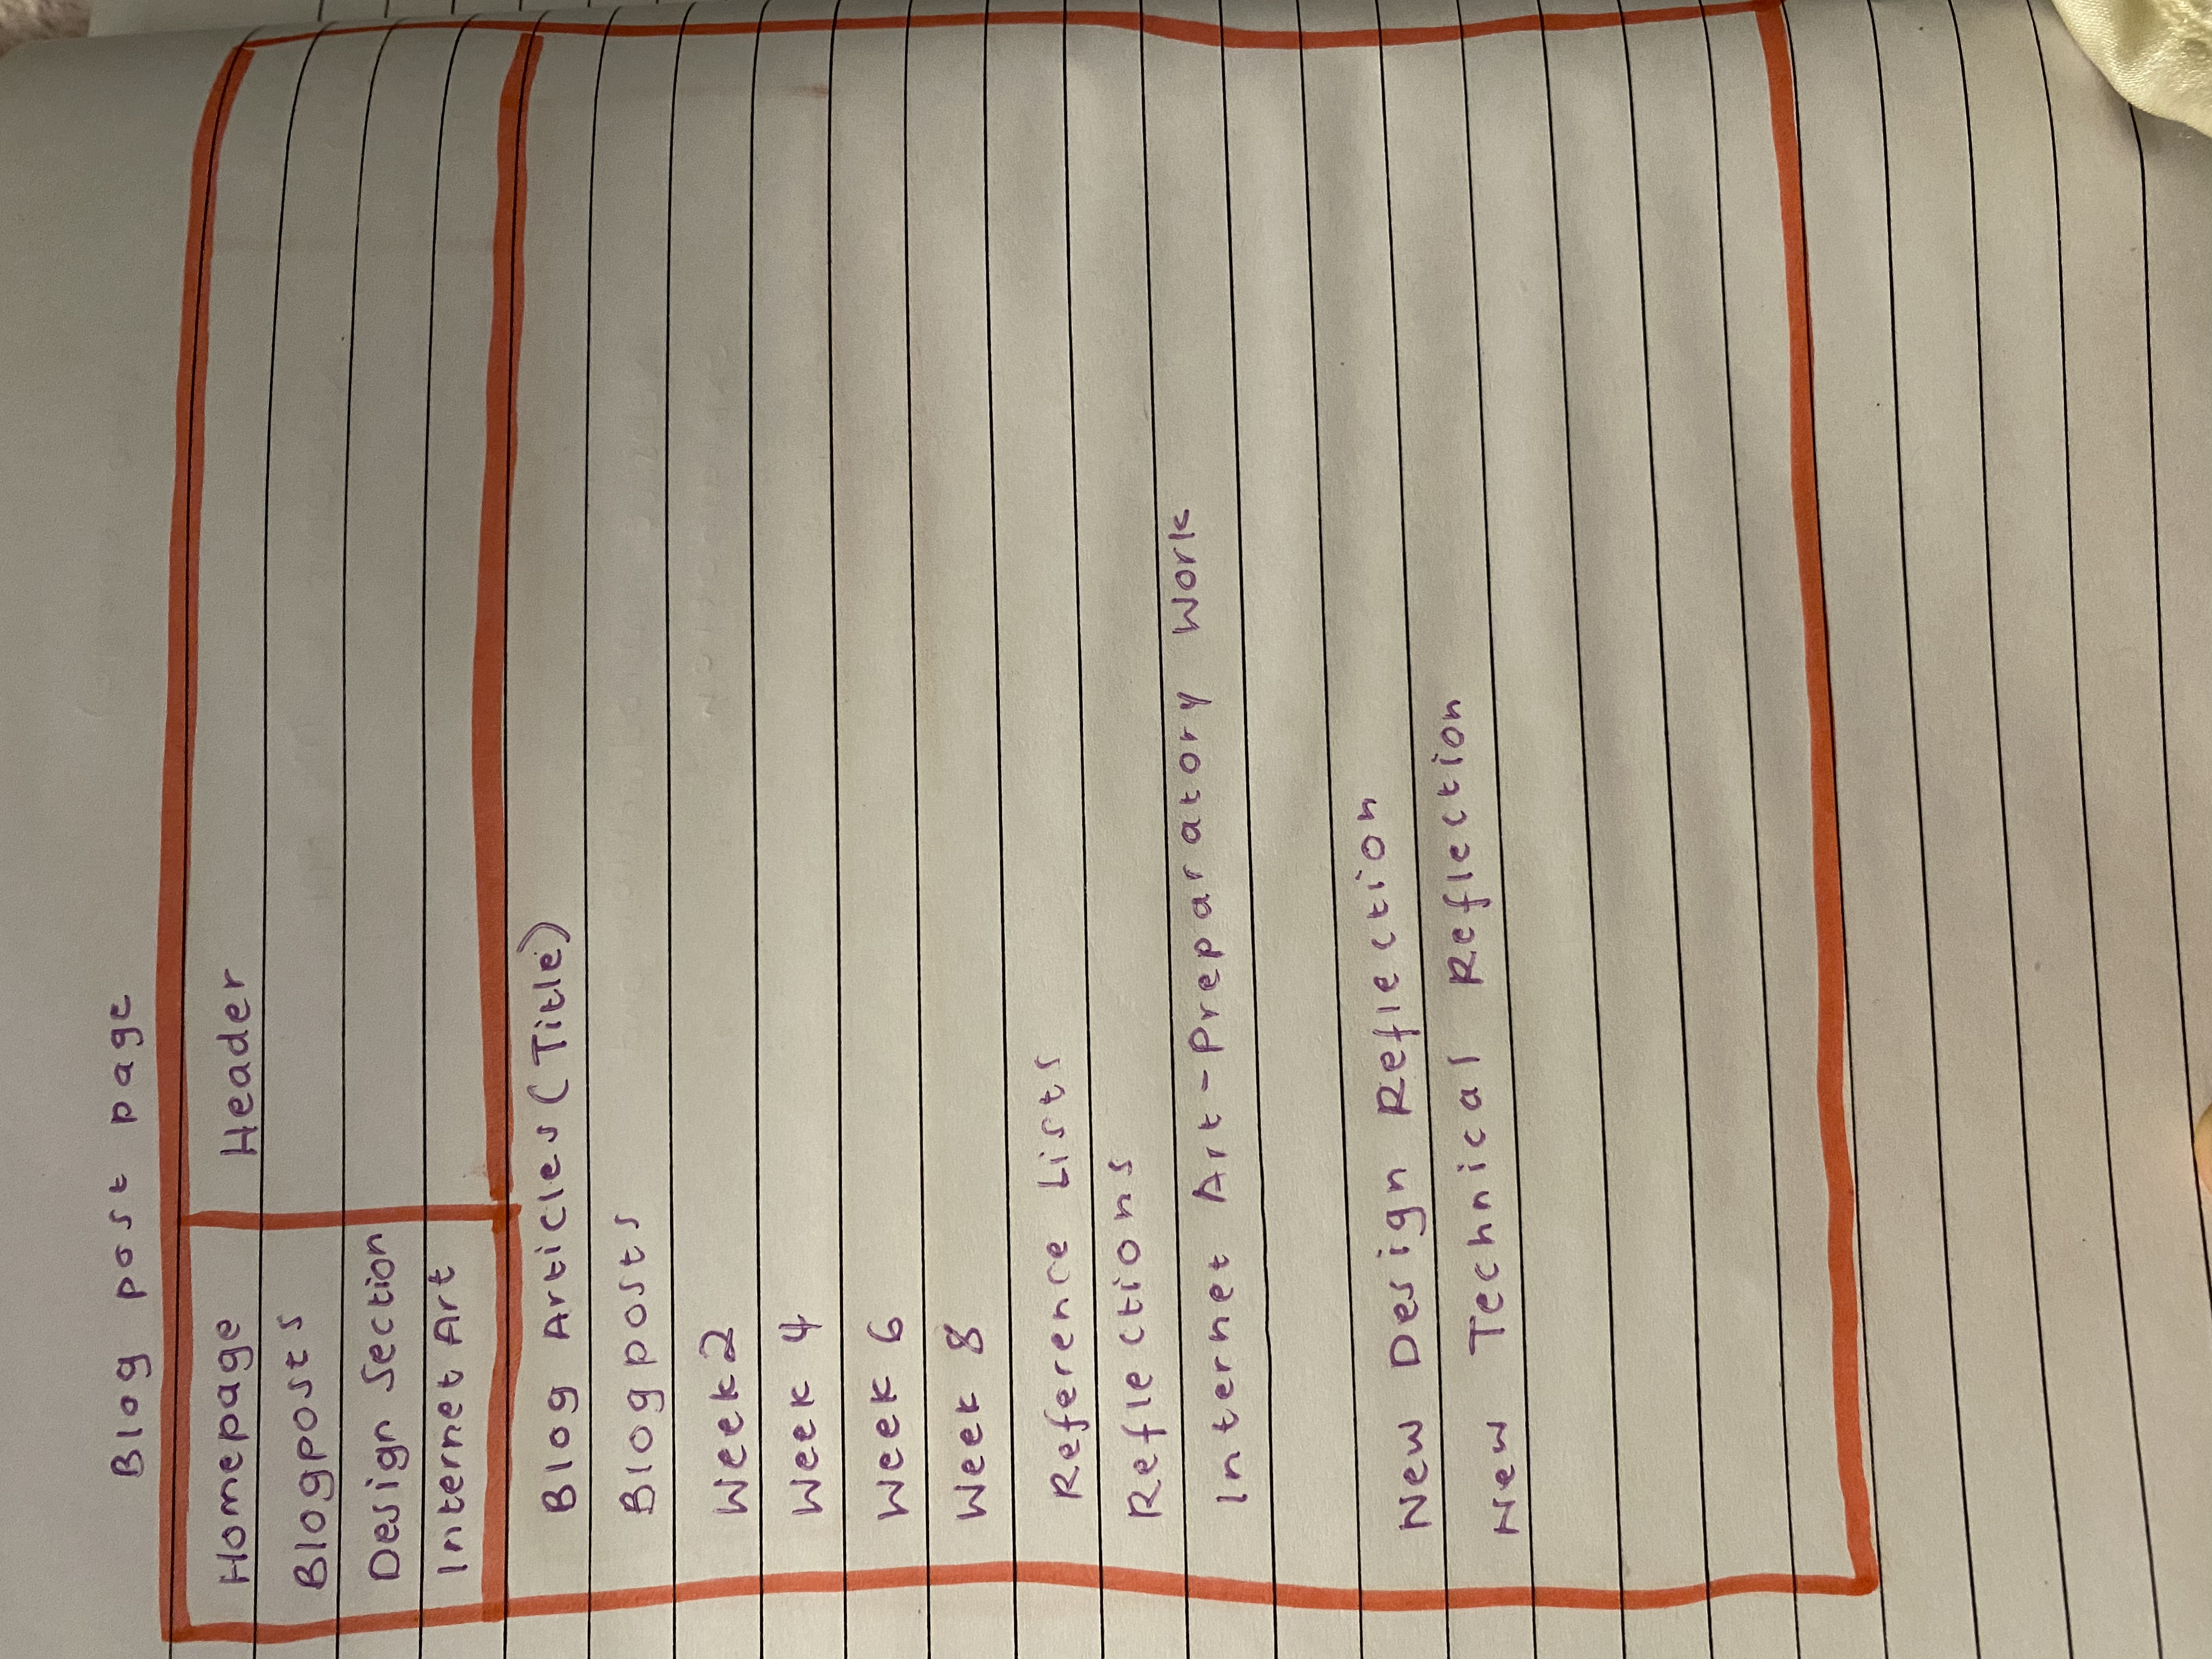 Blog post page
Homepage
Header
Blogposts
Design Section
Internet Art
Blog Articles (Title)
Blogposts
Week 2
Week 4
Week 6
Week 8
Reference Lists
Reflections
Internet Art - Preparatory Work
New Design Reflection
New Technical Reflection